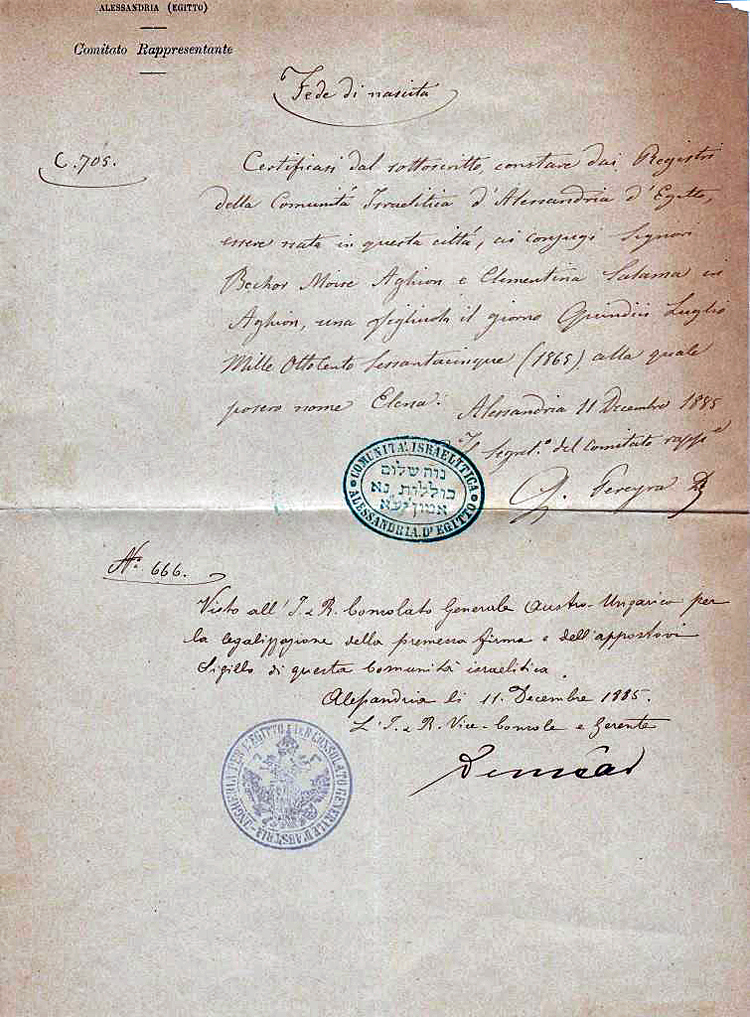 ALESSANDRIA (EGITTO)
Comitato Rappresentante
Fede di nascita
C. 705.
Certificasi dal sottoscritto, constare dai Registri
della Comunità Israelitica d'Alessandria d'Egitto,
essere nata in questa città, ai conjugi Signori
Bechor Moise Aghion e Clementina Salama in
Aghion, una figliuola il giorno Quindici Luglio
Mille Ottocento Sessantacinque (1865) alla quale
posero nome Elena.
Alessandria 11 Decembre 1885
Il Segret.o del comitato rapp.e
G. Pereyra
COMUNITÀ ISRAELITICA
נוה שלום
כוללות נא
אמון יעא
ALESSANDRIA D'EGITTO
No. 666.
Visto all' I. e R. Consolato Generale Austro-Ungarico per
la legalizzazione della premessa firma e dell'appostovi
Sigillo di questa Comunità israelitica.
Alessandria li 11. Decembre 1885.
L' I. e R. Vice-Console e Gerente
I. e R. CONSOLATO GENERALE D'AUSTRIA-UNGHERIA PER L'EGITTO